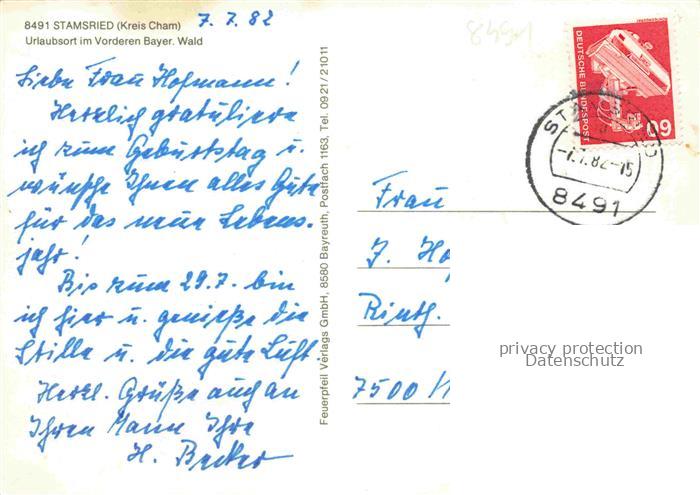 8491 STAMSRIED (Kreis Cham)
Urlaubsort im Vorderen Bayer. Wald
7. 7. 82
Liebe Frau Hofmann!
Herzlich gratuliere
ich zum Geburtstag u.
wünsche Ihnen alles Gute
für das neue Lebens-
jahr!
Bis zum 29.7. bin
ich hier u. genieße die
Stille u. die gute Luft
Herzl. Grüße auch an
Ihren Mann Ihre
H. Becker
Feuerpfeil Verlags GmbH, 8580 Bayreuth, Postfach 1163, Tel. 0921/21011
8491
DEUTSCHE BUNDESPOST
60
-7.7.82-15
8491
Frau
J. Ho
Rinth.
7500
privacy protection
Datenschutz